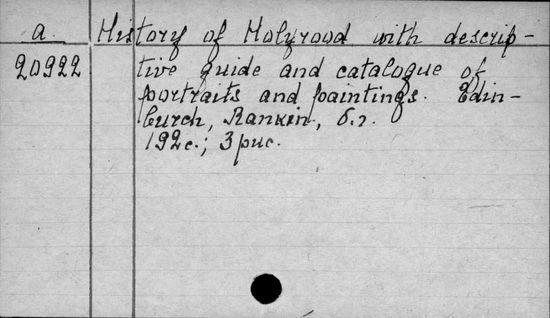 a. History of Holyrood with descrip-
20922 tive guide and catalogue of
portraits and paintings. Edin-
burch, Rankin, б.г.
192с.; 3 рис.